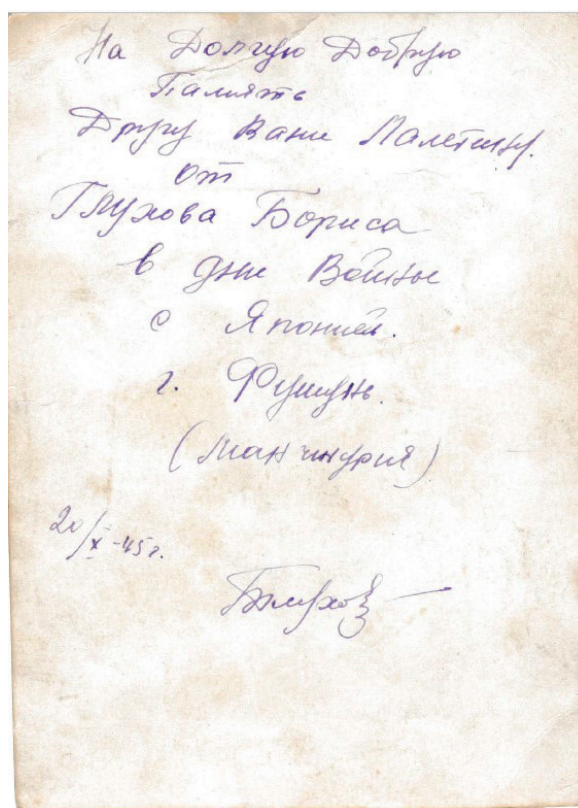 На Долгую Добрую
Память
Другу Вани Малетину.
от
Глухова Бориса
в дни Войны
с Японией.
г. Фушунь.
(Манчжурия)
20/X-45 г.